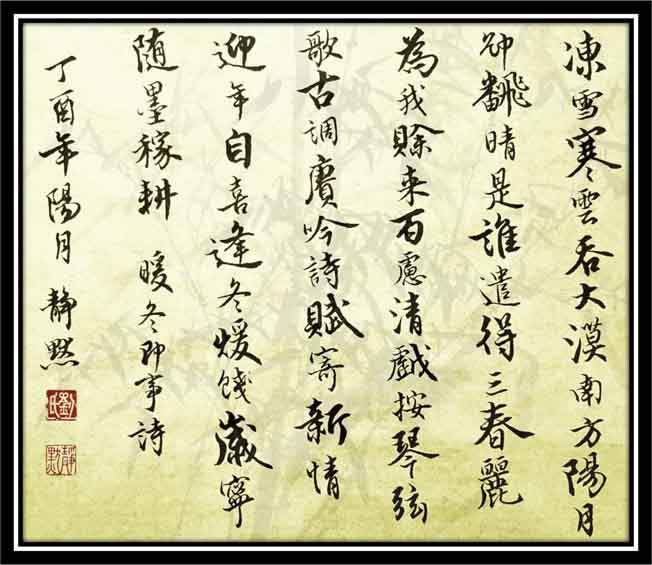 凍雪寒雲吞大漠南方陽月
卻飜晴是誰遣得三春麗
為我賒来百慮清戲按琴弦
歌古調賡吟詩賦寄新情
迎年自喜逢冬煖餞歲寧
随墨稼耕 暖冬即事詩
丁酉年陽月 靜默
劉氏
靜默